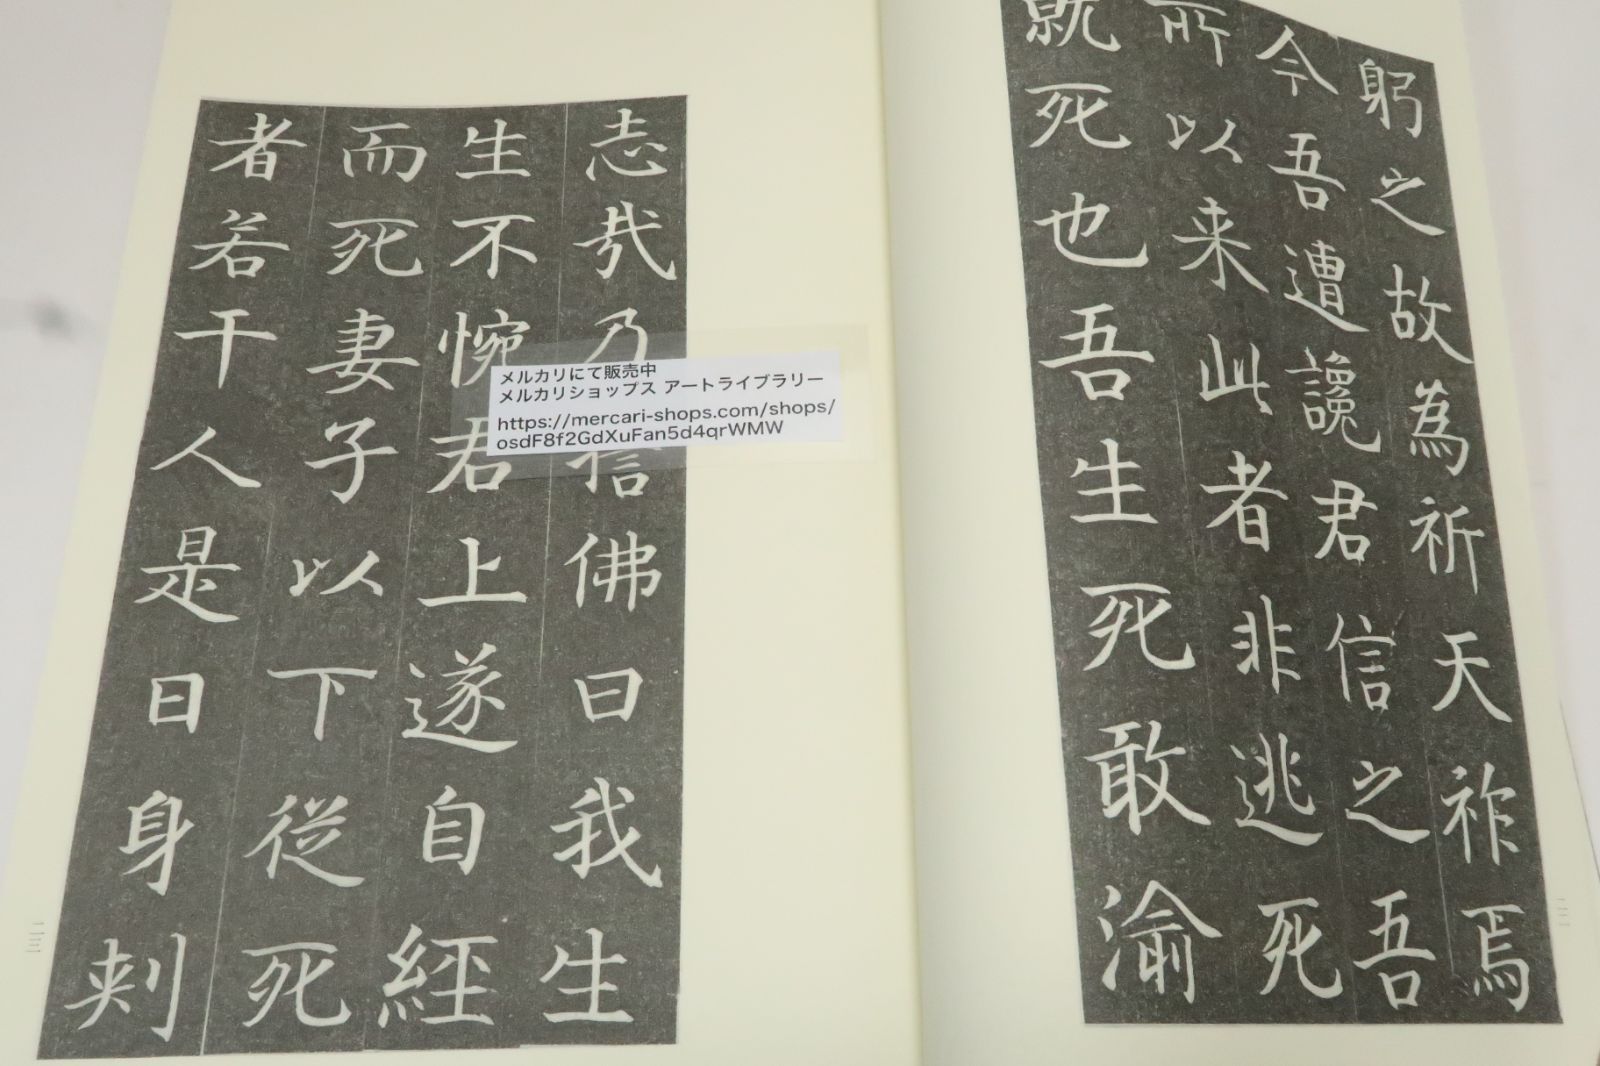 躬之故為祈天祚焉
今吾遭讒君信之吾
所以来此者非逃死
就死也吾生死敢渝
志哉乃
信佛曰我生
生不惋君上遂自經
而死妻子以下從死
者若干人是日身刾
メルカリにて販売中
メルカリショップス アートライブラリー
https://mercari-shops.com/shops/
osdF8f2GdXuFan5d4qrWMW
二二
二三